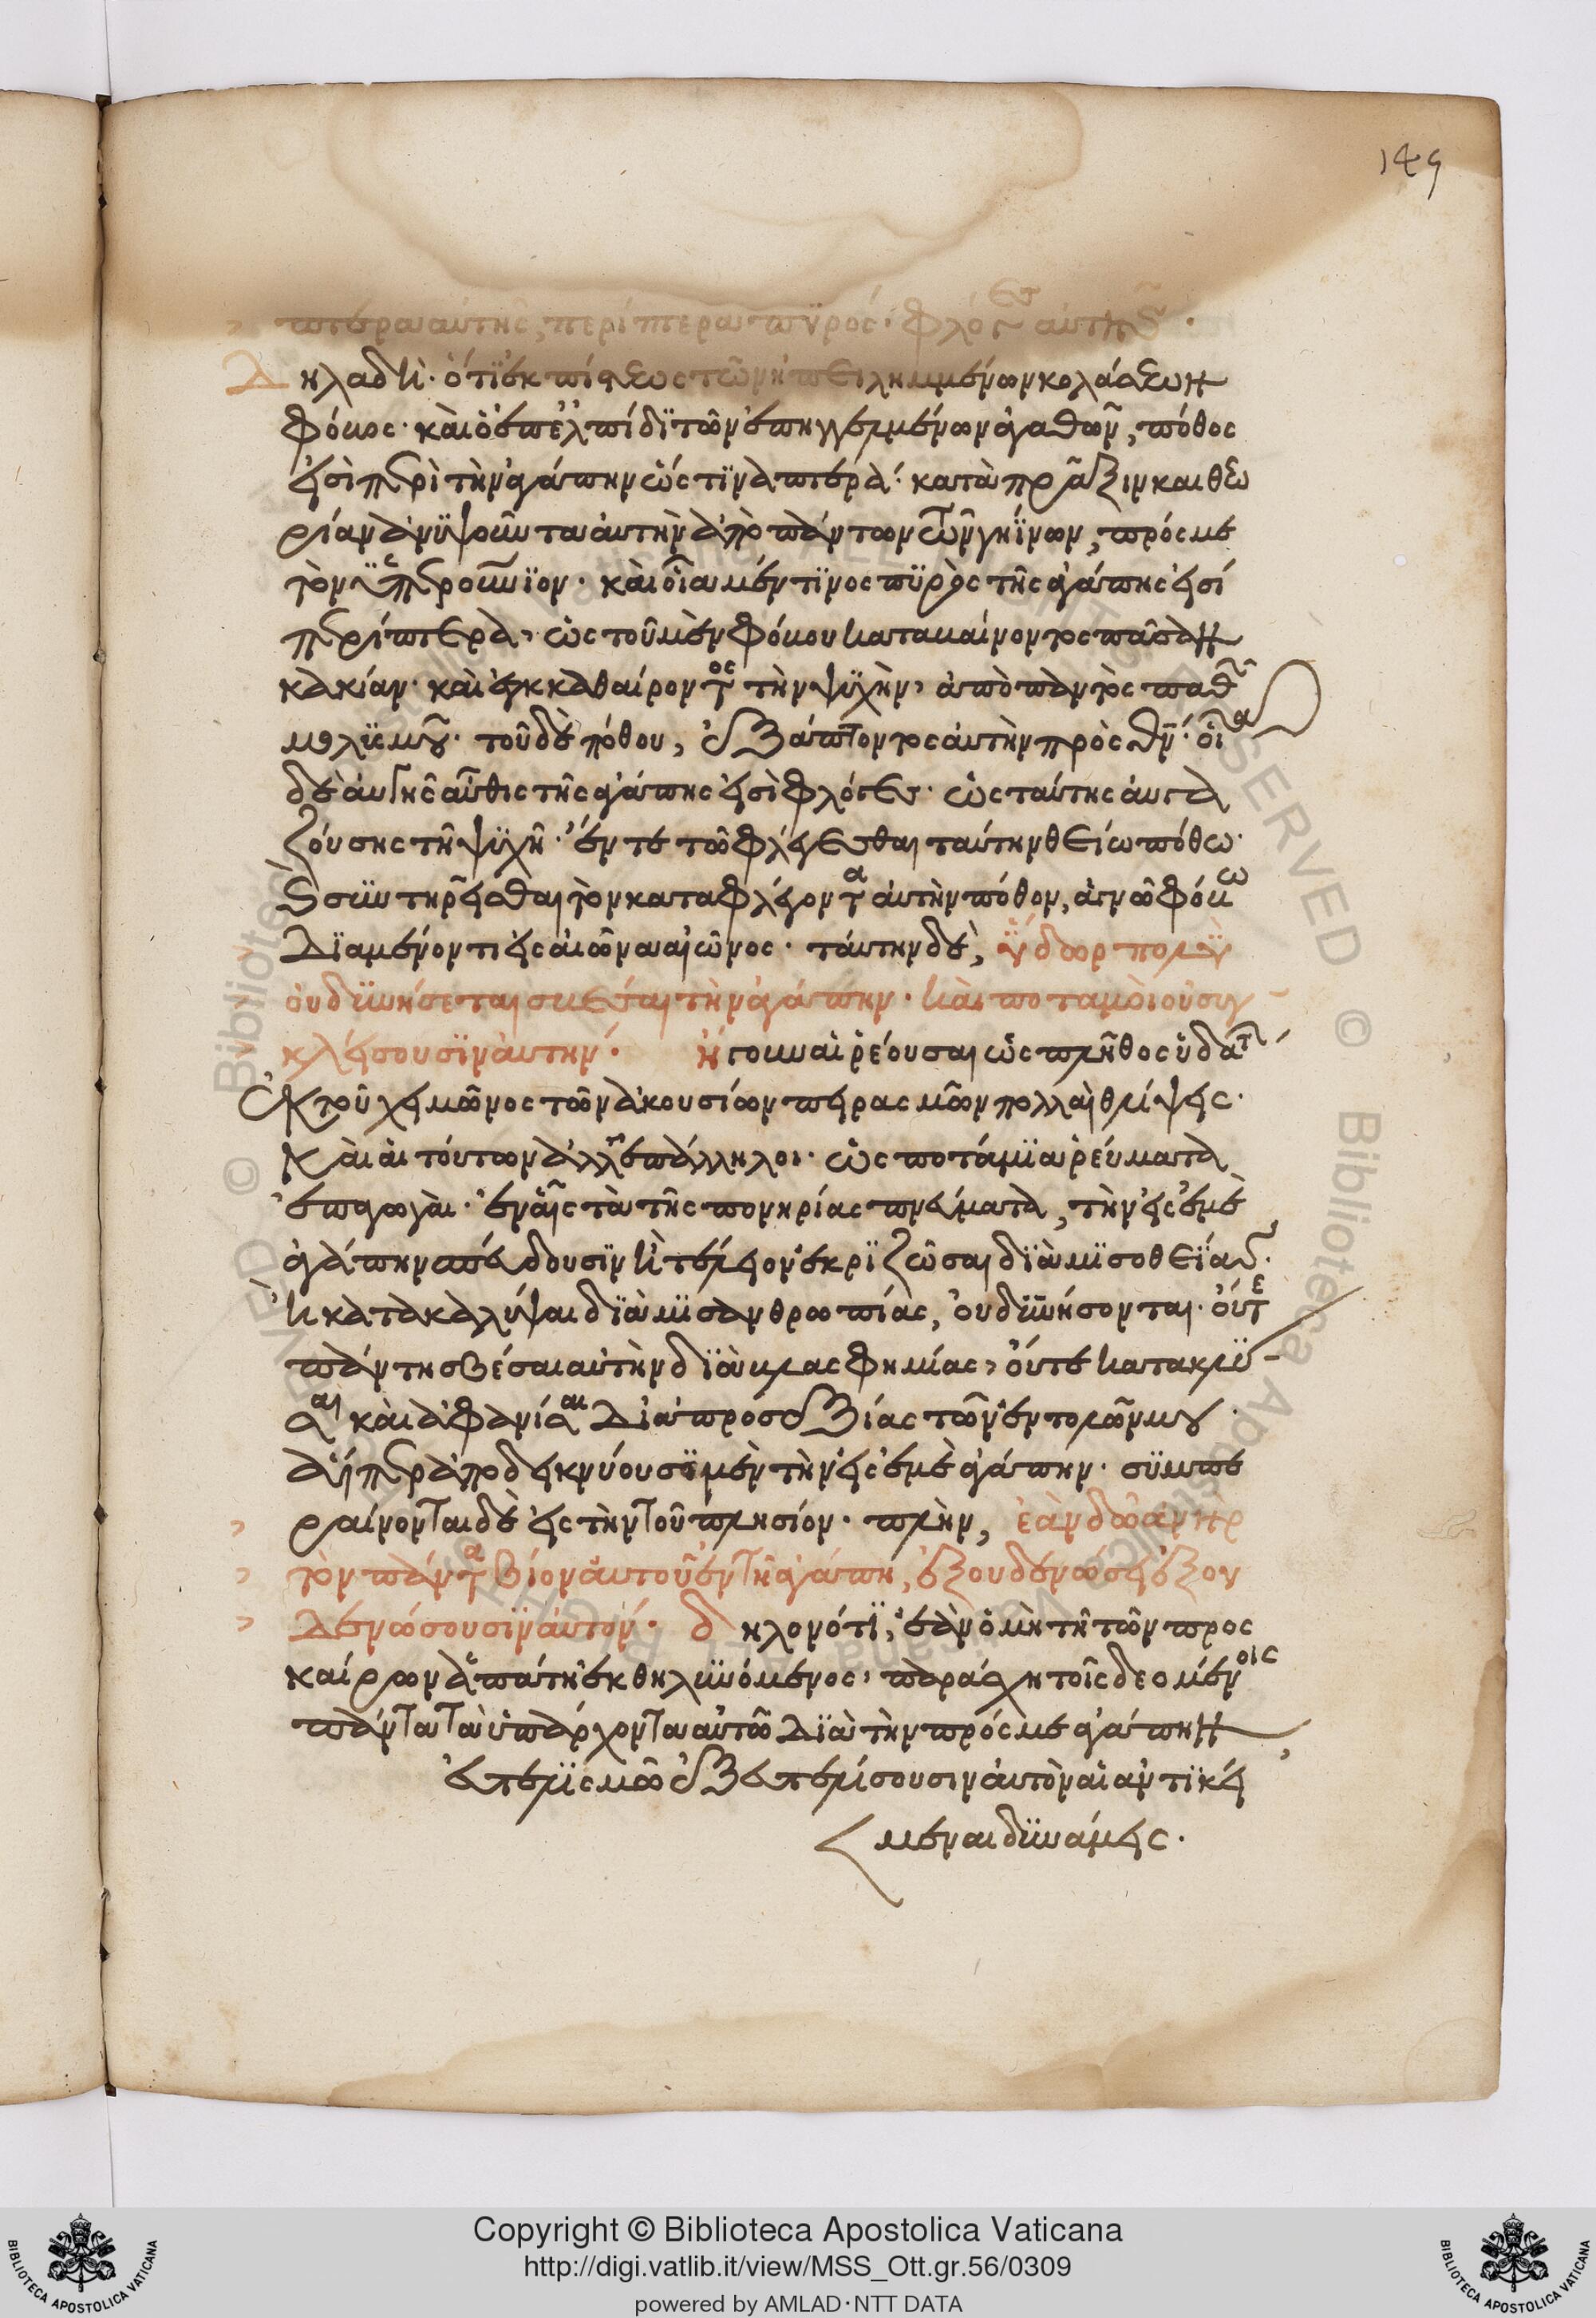 149
πτερὰ αὐτῆς, περίπτερα πυρός· φλόγες αὐτῆς·
Δηλαδὴ· ὅτι ὁ ἐκ πίστεως τῶν ἠπειλημμένων κολάσεων
φόβος· καὶ ὁ ἐπ' ἐλπίδι τῶν ἐπηγγελμένων ἀγαθῶν, πόθος
εἰσὶ περὶ τὴν ἀγάπην ὥς τινα πτερά· κατὰ πρᾶξιν και θεω
ρίαν ἀνυψοῦνται αὐτὴν ἀπὸ πάντων τῶν γηΐνων, πρός με
τὸν ὑπερουράνιον· καὶ οἷα μέν τινος πυρὸς τῆς ἀγάπης εἰσί
περίπτερα, ὡς τοῦ μὲν φόβου κατακαίνοντος πᾶσαν
κακίαν· καὶ ἐκκαθαίροντος τὴν ψυχὴν, ἀπὸ παντὸς παθ
μολυσμοῦ· τοῦ δὲ πόθου, ἐξάπτοντος αὐτὴν πρὸς θν· οἷα
δὲ αὐτῆς αὖθις τῆς ἀγάπης εἰσὶ φλόγες· ὡς ταύτης αὐγα
ζούσης τῆ ψυχῆ· ἔν τε τῶ φλέγεσθαι ταύτην θείω πόθω·
καὶ συντηρεῖσθαι τὸν καταφλέγοντα αὐτὴν πόθον, ἁγνῶ φόβω
Διαμένοντι εἰς αἰῶνα αἰῶνος· ταύτην δὲ, ὕδωρ πολὺ
οὐ δυνήσεται σβέσαι τὴν ἀγάπην· καὶ ποταμοὶ οὐ συγ
κλείσουσιν αὐτήν· ἤγουν αἱ ῥέουσαι ὡς πλῆθος ὑδάτ
ἐκ τοῦ χειμῶνος τῶν ἀκουσίων πειρασμῶν πολλαὶ θλίψεις·
Καὶ αἱ τούτων ἀλλεπάλληλοι· ὡς ποτάμια ῥεύματα
ἐπαγωγαὶ· ἐν αἷς τὰ τῆς πονηρίας πνεύματα, τὴν εἰς ἐμὲ
ἀγάπην σπεύδουσιν ἢ τέλεον ἐκριζῶσαι διὰ μισοθεΐας·
ἢ κατακαλύψαι διὰ μισανθρωπίας, οὐ δυνήσονται· οὔτε
πάντη σβέσαι αὐτὴν διὰ βλασφημίας, οὔτε κατακλύ-
σαι καὶ ἀφανίσαι Διὰ προσεξίας τῶν ἐντολῶν μου·
αἵπερ ἀποδεικνύουσι μὲν τὴν εἰς ἐμὲ ἀγάπην· συμπε
ραίνονται δὲ εἰς τὴν τοῦ πλησίον· πλὴν, ἐὰν δῶ ἀνὴρ
τὸν πάντα βίον αὐτοῦ ἐν τῆ ἀγάπη, ἐξουδενώσει ἐξου
Δενώσουσιν αὐτόν· δηλονότι, ἐὰν ὁ μὴ τῆ τῶν προς
καίρων ἀπάτη ἐκθηλυνόμενος, παράσχη τοῖς δεομένοις
πάντα τὰ ὑπάρχοντα αὐτῶ Διὰ τὴν πρός με ἀγάπην,
εὐτελισμῶ ἐξευτελίσουσιν αὐτὸν αἱ ἀντικεί
μεναι δυνάμεις·
Copyright © Biblioteca Apostolica Vaticana
http://digi.vatlib.it/view/MSS_Ott.gr.56/0309
powered by AMLAD·NTT DATA
BIBLIOTECA APOSTOLICA VATICANA
BIBLIOTECA APOSTOLICA VATICANA